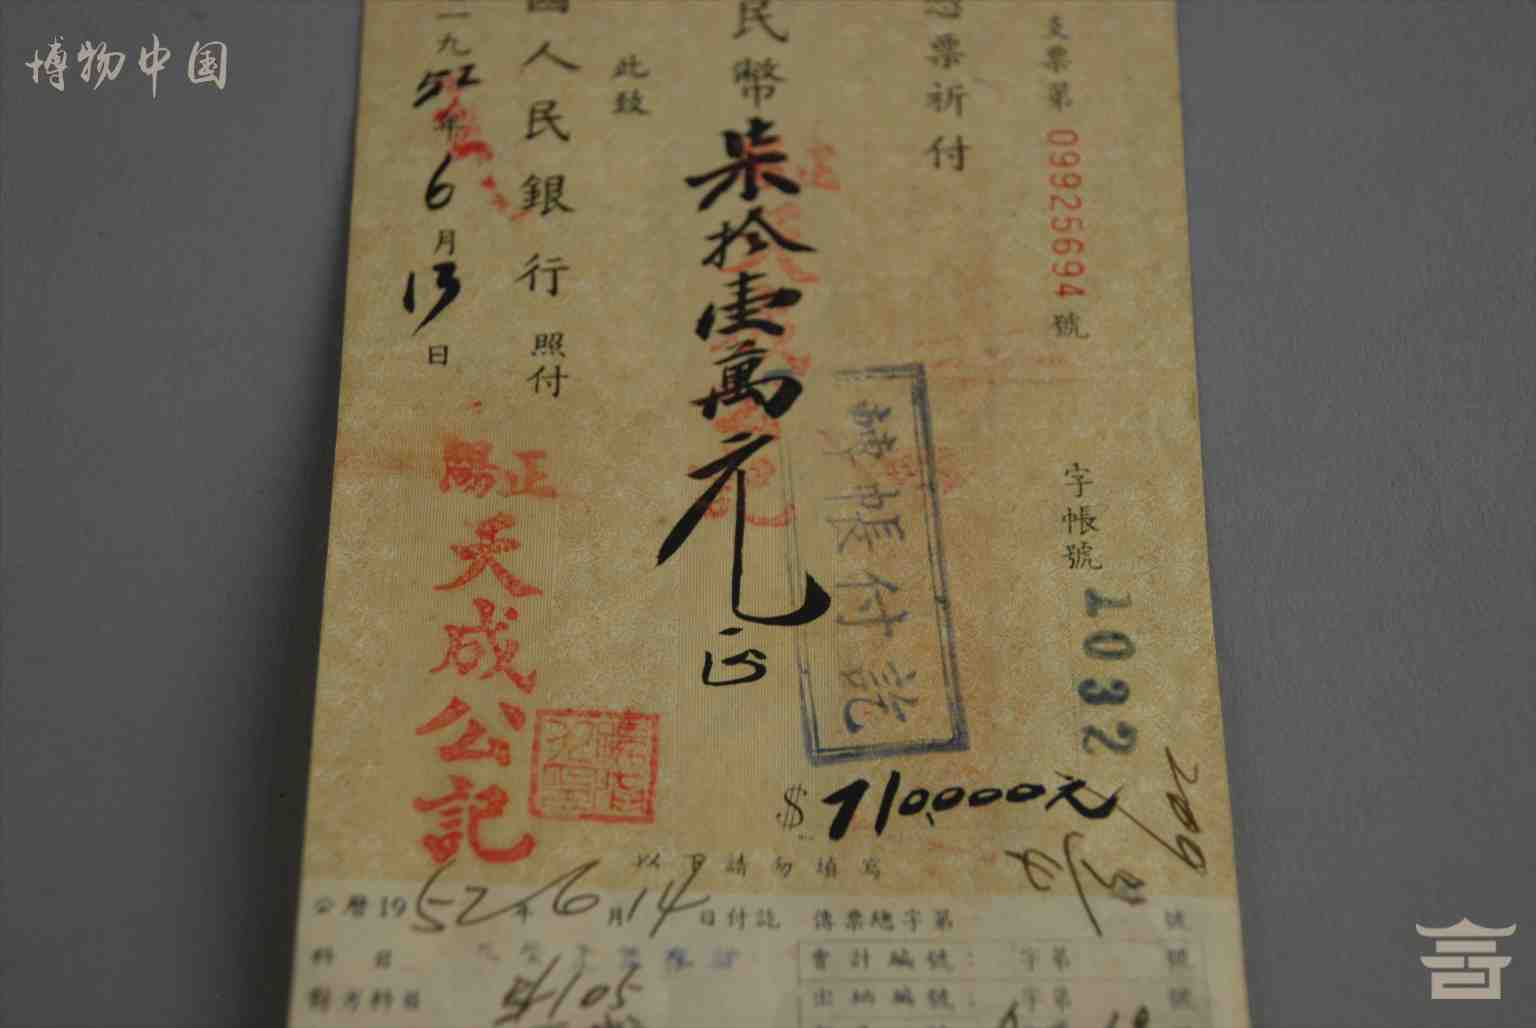 博物中国
支票第 09925694 號
字帳號 1032
票祈付
民幣柒拾壹萬元正
轉帳付訖
$710,000元
此致
國人民銀行照付
一九52年6月13日
正陽
天成公記
以下請勿填寫
公曆1952年6月14日付訖
傳票總字第 號
科目
會計編號: 字第 號
對方科目
出納編號: 字第 號